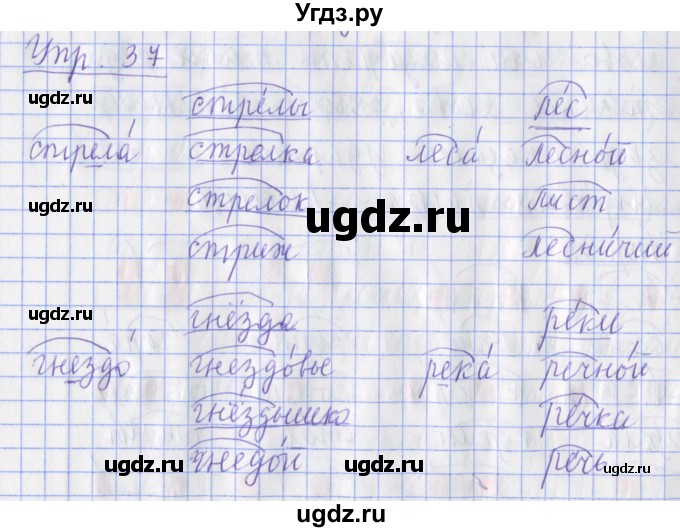 Угдз.ру
Упр. 37
ugdz.ru
стре́лы
ле́с
стрела́ стрелка леса́ лесно́й
ugdz.ru
стрелок
лист
ugdz.ru
стриж
лесни́чий
ugdz.ru
гнёзда
ре́ки
гнездо́ гнездо́вье река́ речно́й
гнёздышко
ре́чка
ugdz.ru
гнедо́й
ugdz.ru
речь
ugdz.ru
ugdz.ru